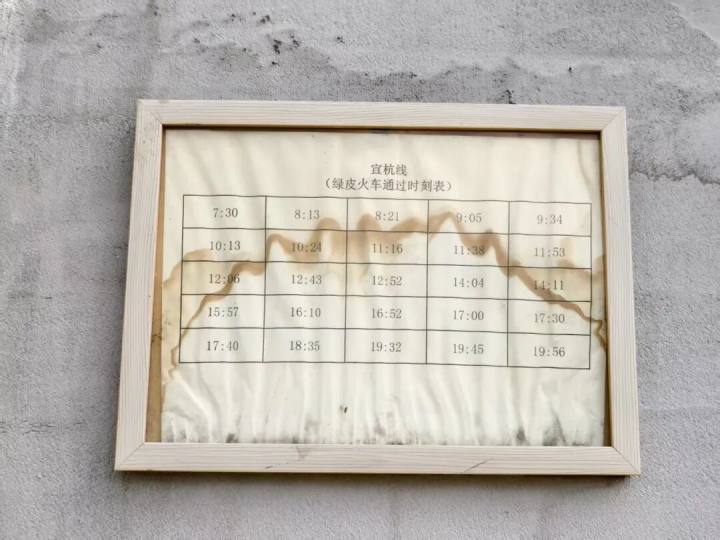 宣杭线
（绿皮火车通过时刻表）
7:30 8:13 8:21 9:05 9:34
10:13 10:24 11:16 11:38 11:53
12:06 12:43 12:52 14:04 14:11
15:57 16:10 16:52 17:00 17:30
17:40 18:35 19:32 19:45 19:56